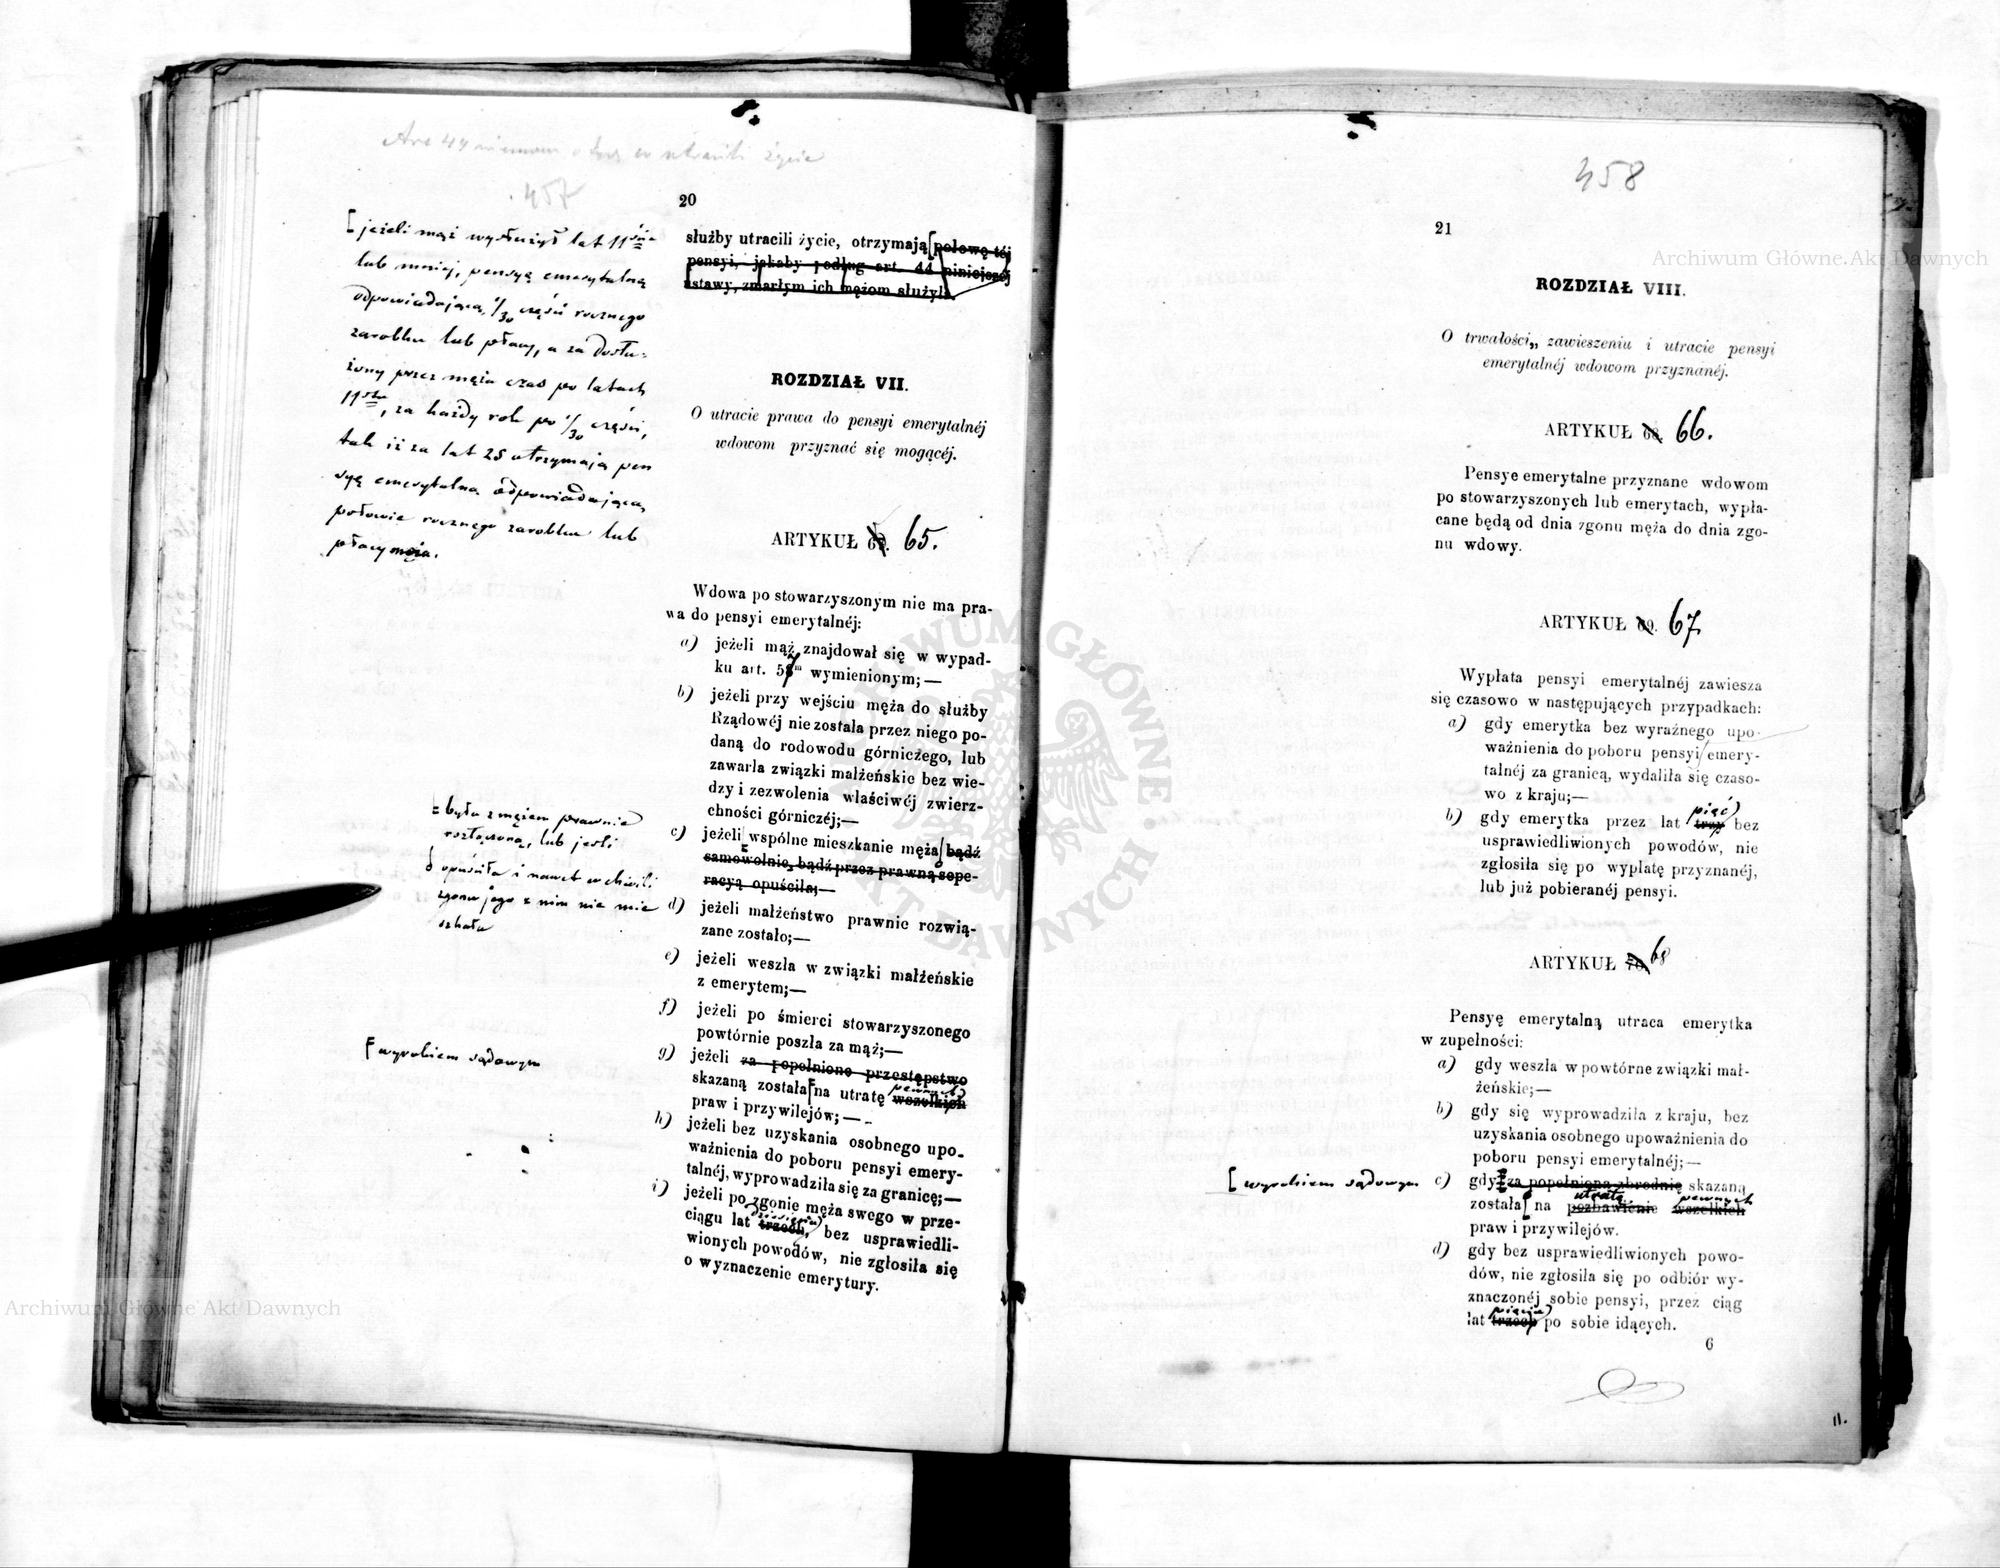 457
20
[ jeżeli mąż wysłużył lat 11ście
lub mniej, pensyą emerytalną
odpowiadającą 1/30 części rocznego
zarobku lub płacy, a za dosłu-
żony przez męża czas po latach
11stu, za każdy rok po 1/30 części,
tak iż za lat 25 otrzymają pen
syą emerytalną odpowiadającą
połowie rocznego zarobku lub
płacy męża.
służby utracili życie, otrzymają [ połowę téj
pensyi, jakaby podług art. 44 niniejszéj
ustawy, zmarłym ich mężom służyła.
ROZDZIAŁ VII.
O utracie prawa do pensyi emerytalnéj
wdowom przyznać się mogącéj.
ARTYKUŁ 65.
Wdowa po stowarzyszonym nie ma pra-
wa do pensyi emerytalnéj:
a) jeżeli mąż znajdował się w wypad-
ku art. 57m wymienionym;—
b) jeżeli przy wejściu męża do służby
Rządowéj nie została przez niego po-
daną do rodowodu górniczego, lub
zawarła związki małżeńskie bez wie-
dzy i zezwolenia właściwéj zwierz-
chności górniczéj;—
c) jeżeli wspólne mieszkanie męża bądź
samowolnie, bądź przez prawną sepe-
racyą opuściła;—
była z mężem prawnie
rozłączoną, lub jeśli
opuściła i nawet w chwili
zgonu jego z nim nie mie
szkała
d) jeżeli małżeństwo prawnie rozwią-
zane zostało;—
e) jeżeli weszła w związki małżeńskie
z emerytem;—
f) jeżeli po śmierci stowarzyszonego
powtórnie poszła za mąż;—
g) jeżeli za popełnione przestępstwo
skazaną została [ na utratę wszelkich pewnych
praw i przywilejów;—
[ wyrokiem sądowym
h) jeżeli bez uzyskania osobnego upo-
ważnienia do poboru pensyi emery-
talnéj, wyprowadziła się za granicę;—
i) jeżeli po zgonie męża swego w prze-
ciągu lat trzech, dziesięciu bez usprawiedli-
wionych powodów, nie zgłosiła się
o wyznaczenie emerytury.
458
21
ROZDZIAŁ VIII.
O trwałości, zawieszeniu i utracie pensyi
emerytalnéj wdowom przyznanéj.
ARTYKUŁ 68. 66.
Pensye emerytalne przyznane wdowom
po stowarzyszonych lub emerytach, wypła-
cane będą od dnia zgonu męża do dnia zgo-
nu wdowy.
ARTYKUŁ 69. 67
Wypłata pensyi emerytalnéj zawiesza
się czasowo w następujących przypadkach:
a) gdy emerytka bez wyraźnego upo-
ważnienia do poboru pensyi emery-
talnéj za granicą, wydaliła się czaso-
wo z kraju;—
b) gdy emerytka przez lat trzy pięć bez
usprawiedliwionych powodów, nie
zgłosiła się po wypłatę przyznanéj,
lub już pobieranéj pensyi.
ARTYKUŁ 70. 68
Pensyę emerytalną utraca emerytka
w zupełności:
a) gdy weszła w powtórne związki mał-
żeńskie;—
b) gdy się wyprowadziła z kraju, bez
uzyskania osobnego upoważnienia do
poboru pensyi emerytalnéj;—
[ wyrokiem sądowym
c) gdy za popełnioną zbrodnię skazaną
została [ na pozbawienie utratę wszelkich pewnych
praw i przywilejów.
d) gdy bez usprawiedliwionych powo-
dów, nie zgłosiła się po odbiór wy-
znaczonéj sobie pensyi, przez ciąg
lat trzech pięciu po sobie idących.
6
11.
Archiwum Główne Akt Dawnych
Archiwum Główne Akt Dawnych
ARCHIWUM GŁÓWNE AKT DAWNYCH